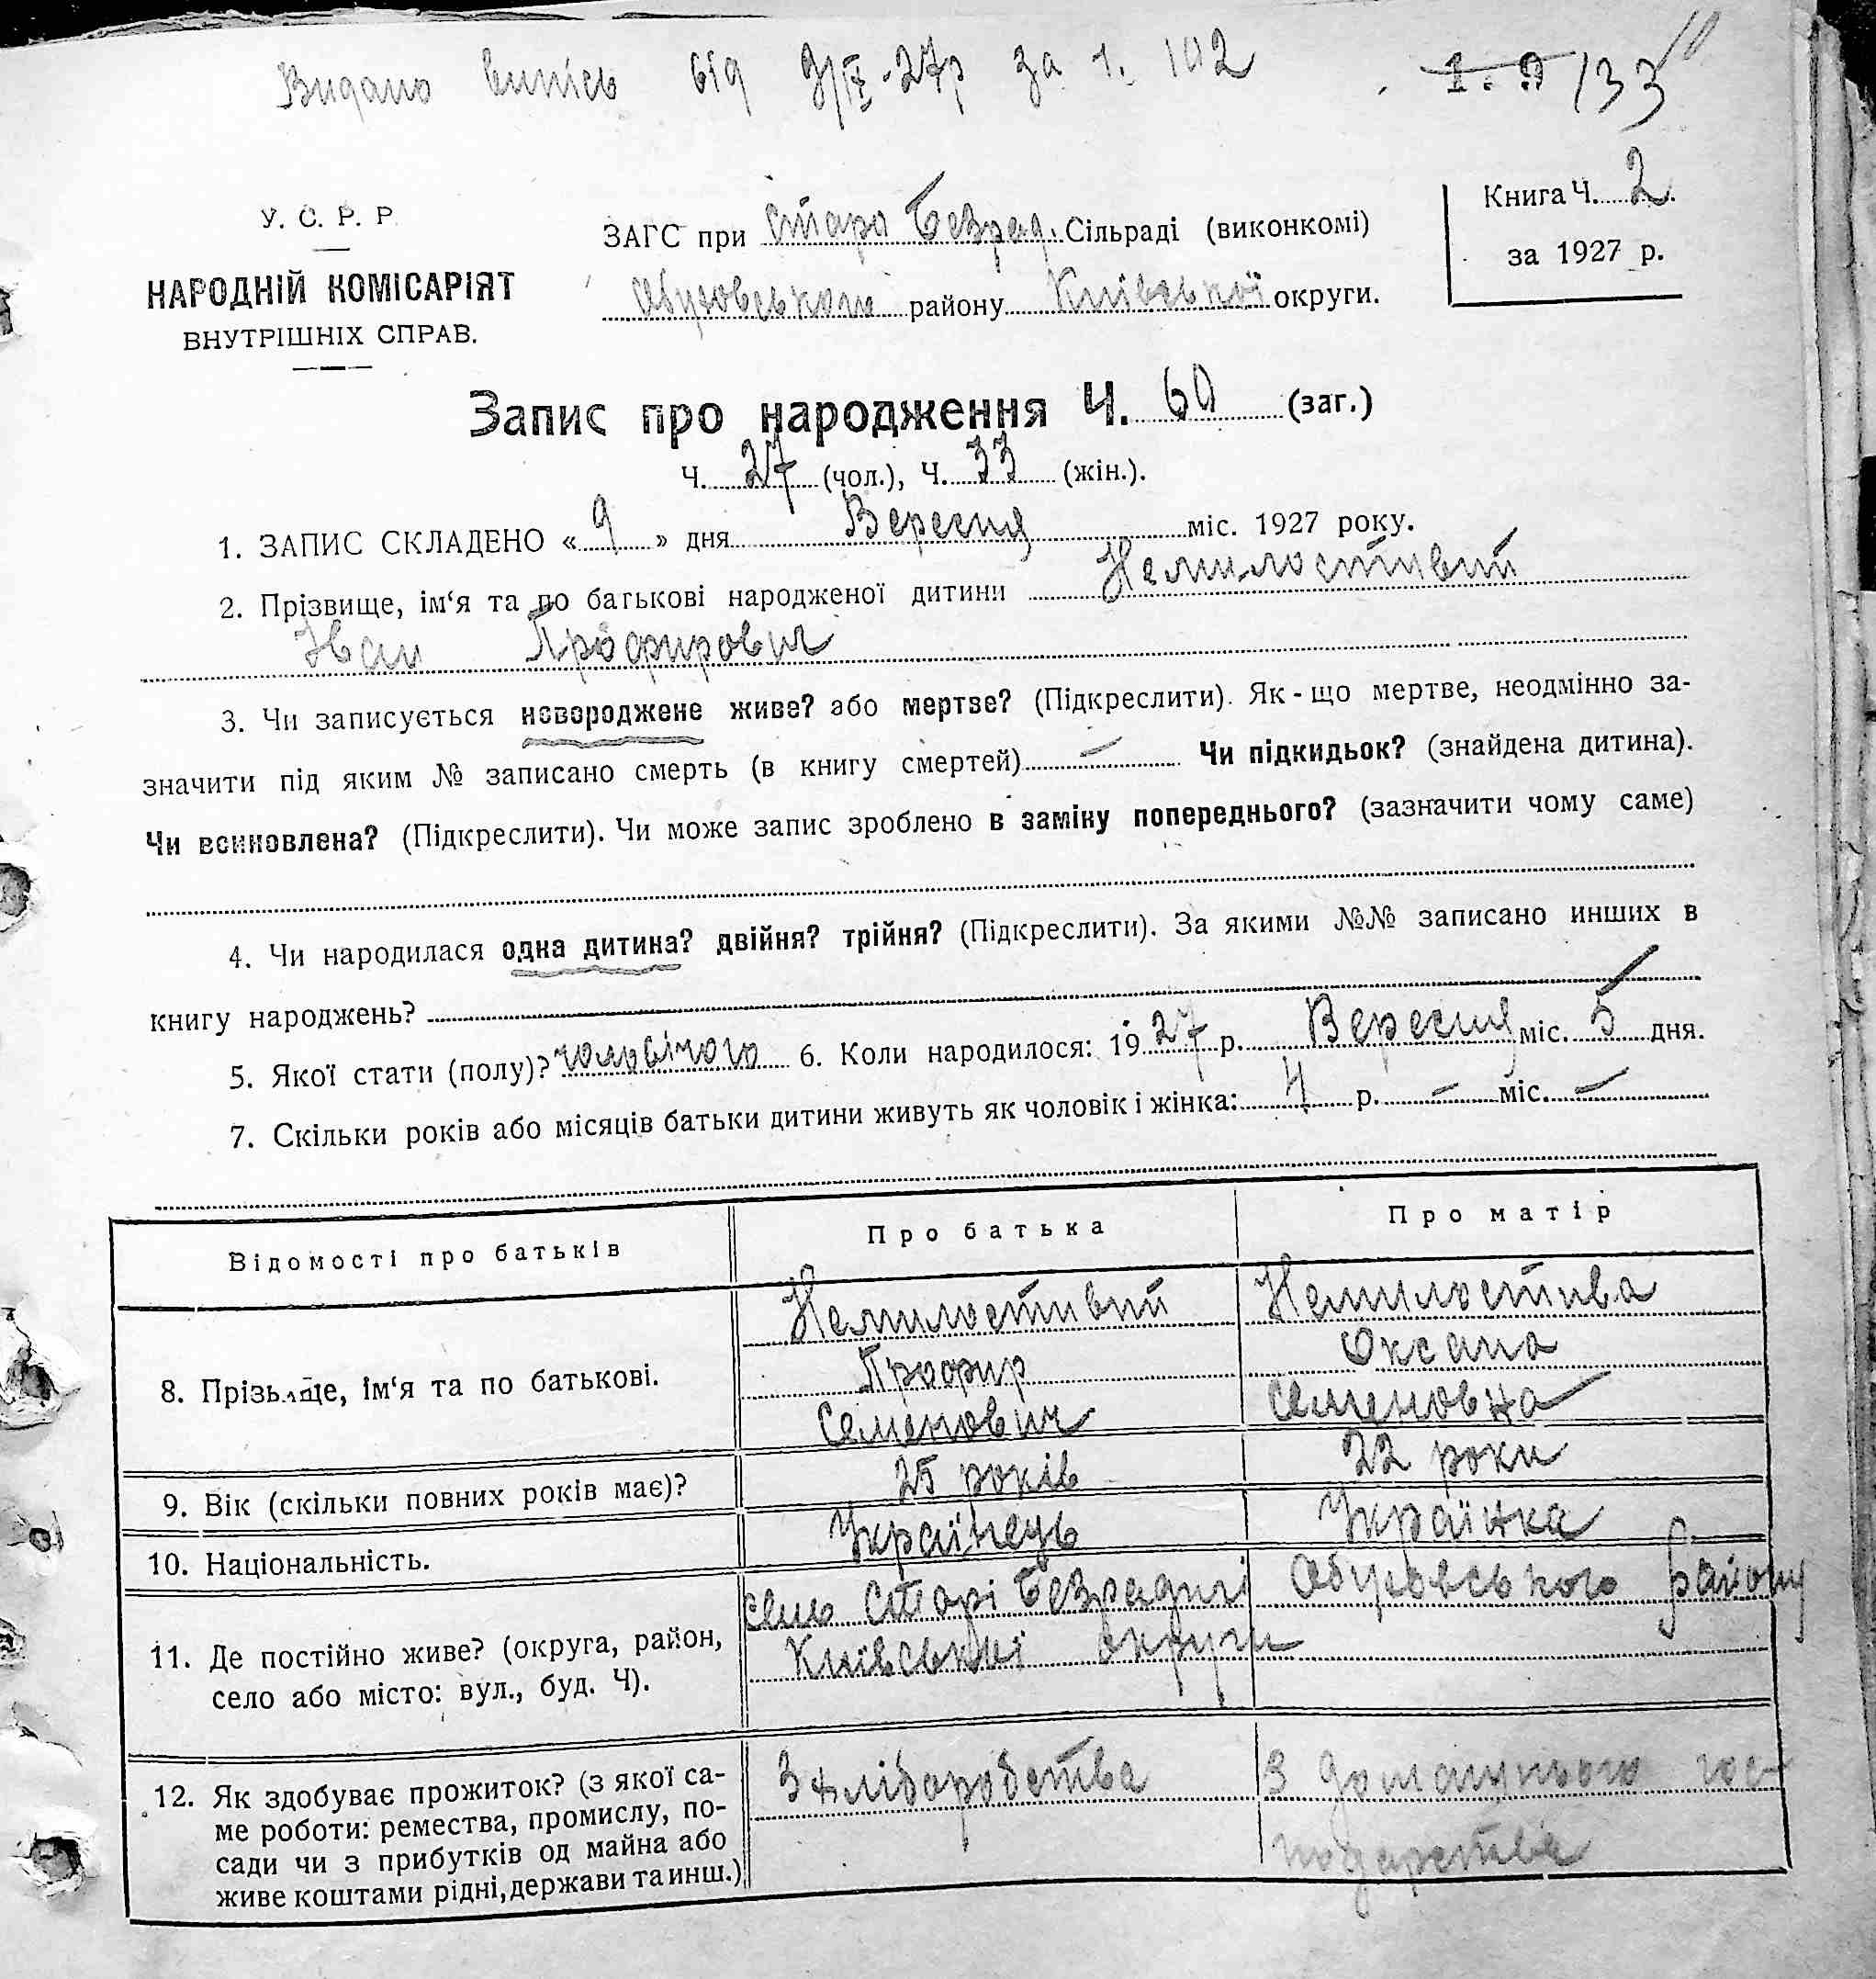 Видано випісь від 9/IX-27р за ч. 102
133
У. С. Р. Р.
НАРОДНІЙ КОМІСАРІЯТ
ВНУТРІШНІХ СПРАВ.
ЗАГС при Старо Безрад. Сільраді (виконкомі)
Обуховського району Київської округи.
Книга Ч. 2
за 1927 р.
Запис про народження Ч. 60 (заг.)
Ч. 27 (чол.), Ч. 33 (жін.).
1. ЗАПИС СКЛАДЕНО « 9 » дня Вересня міс. 1927 року.
2. Прізвище, ім‘я та по батькові народженої дитини Немилостивий
Іван Профирович
3. Чи записується новороджене живе? або мертве? (Підкреслити). Як-що мертве, неодмінно за-
значити під яким № записано смерть (в книгу смертей) — Чи підкидьок? (знайдена дитина).
Чи всиновлена? (Підкреслити). Чи може запис зроблено в заміну попереднього? (зазначити чому саме)
4. Чи народилася одна дитина? двійня? трійня? (Підкреслити). За якими №№ записано инших в
книгу народжень? —
5. Якої стати (полу)? чоловічого 6. Коли народилося: 1927 р. Вересня міс. 5 дня.
7. Скільки років або місяців батьки дитини живуть як чоловік і жінка: 4 р. — міс. —
Відомості про батьків Про батька Про матір
8. Прізвище, ім‘я та по батькові.
Немилостивий
Профир
Семенович
Немилостива
Оксана
Семеновна
9. Вік (скільки повних років має)? 25 років 22 роки
10. Національність. Українець Українка
11. Де постійно живе? (округа, район,
село або місто: вул., буд. Ч).
село Старі Безрадичі Обуховського району
Київської округи
12. Як здобуває прожиток? (з якої са-
ме роботи: ремества, промислу, по-
сади чи з прибутків од майна або
живе коштами рідні, держави та инш.)
З хліборобства
З домашнього гос-
подарства